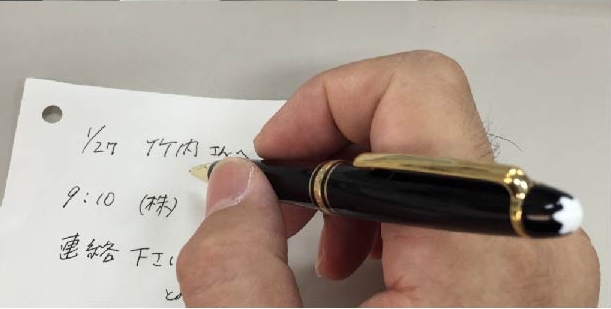 1/27 竹内さんへ
9:10 (株)
連絡下さい
との